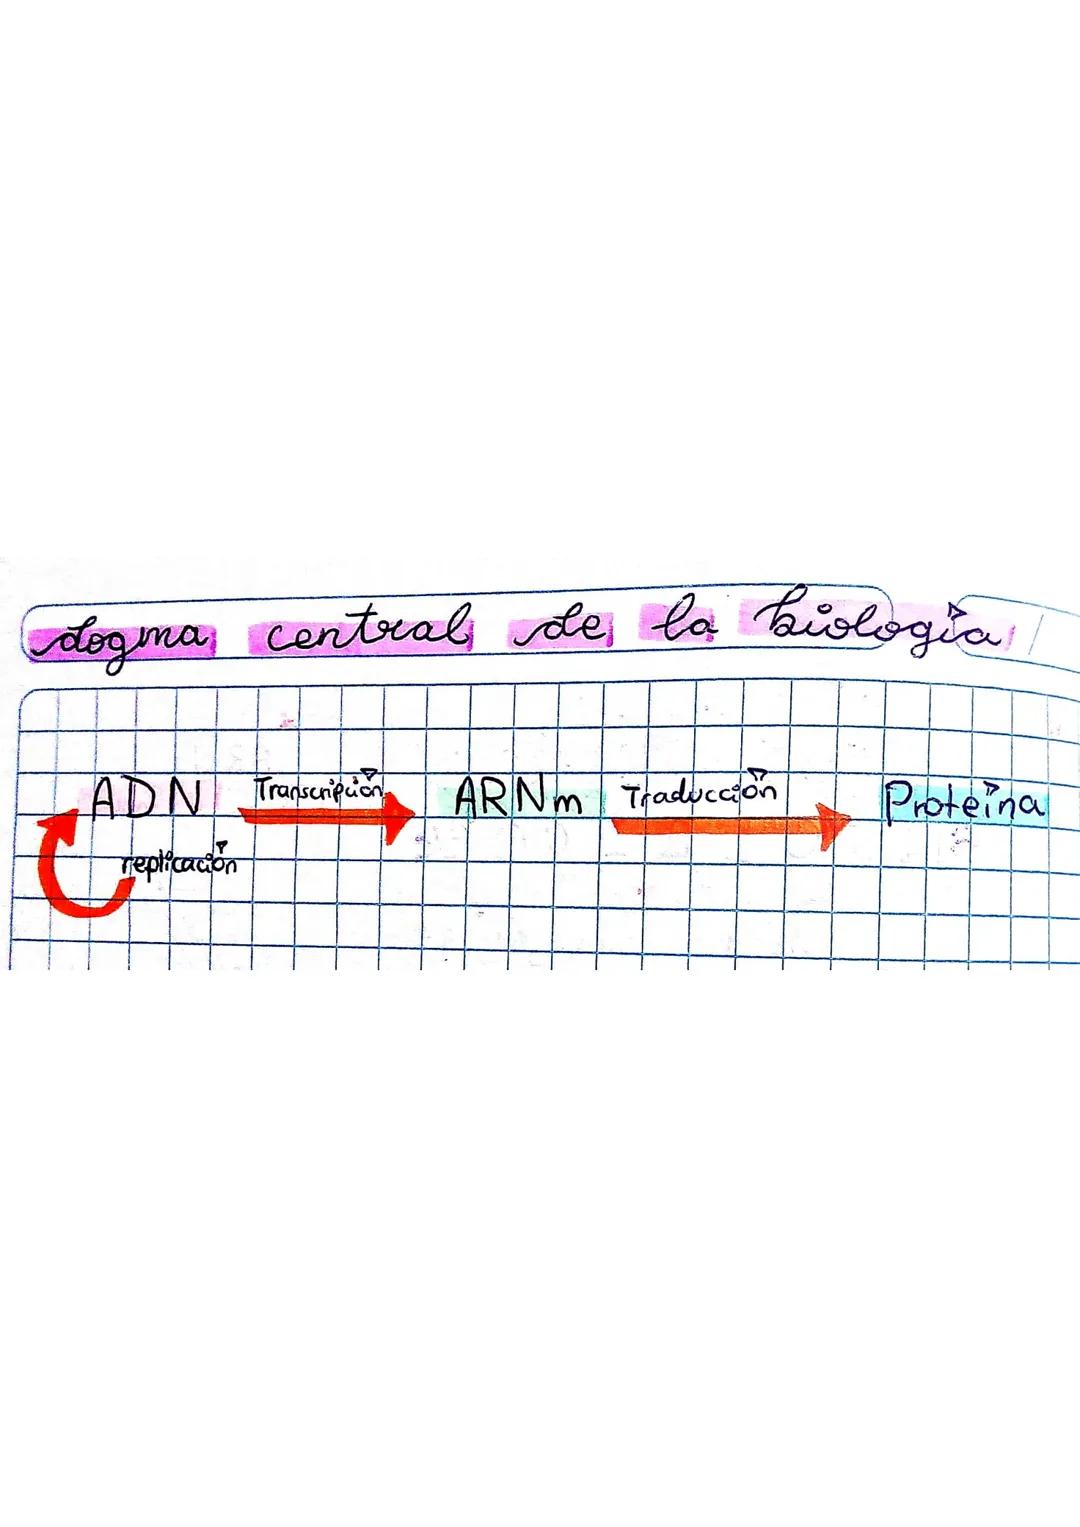 dogma central de la biología
ADN Transcripción ARNm Traducción Proteína
replicación